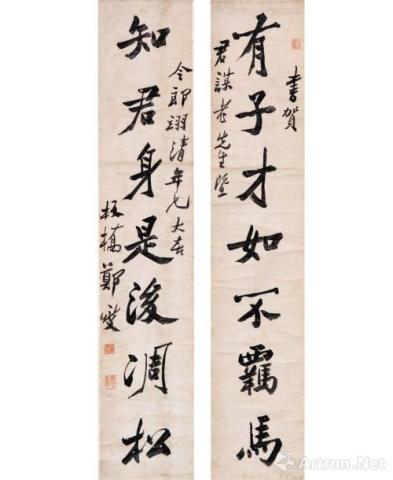 書賀
有子才如不羈馬
君謀老先生暨
令郎翊清年兄大喜
知君身是後凋松
板橋鄭燮
Artron.Net